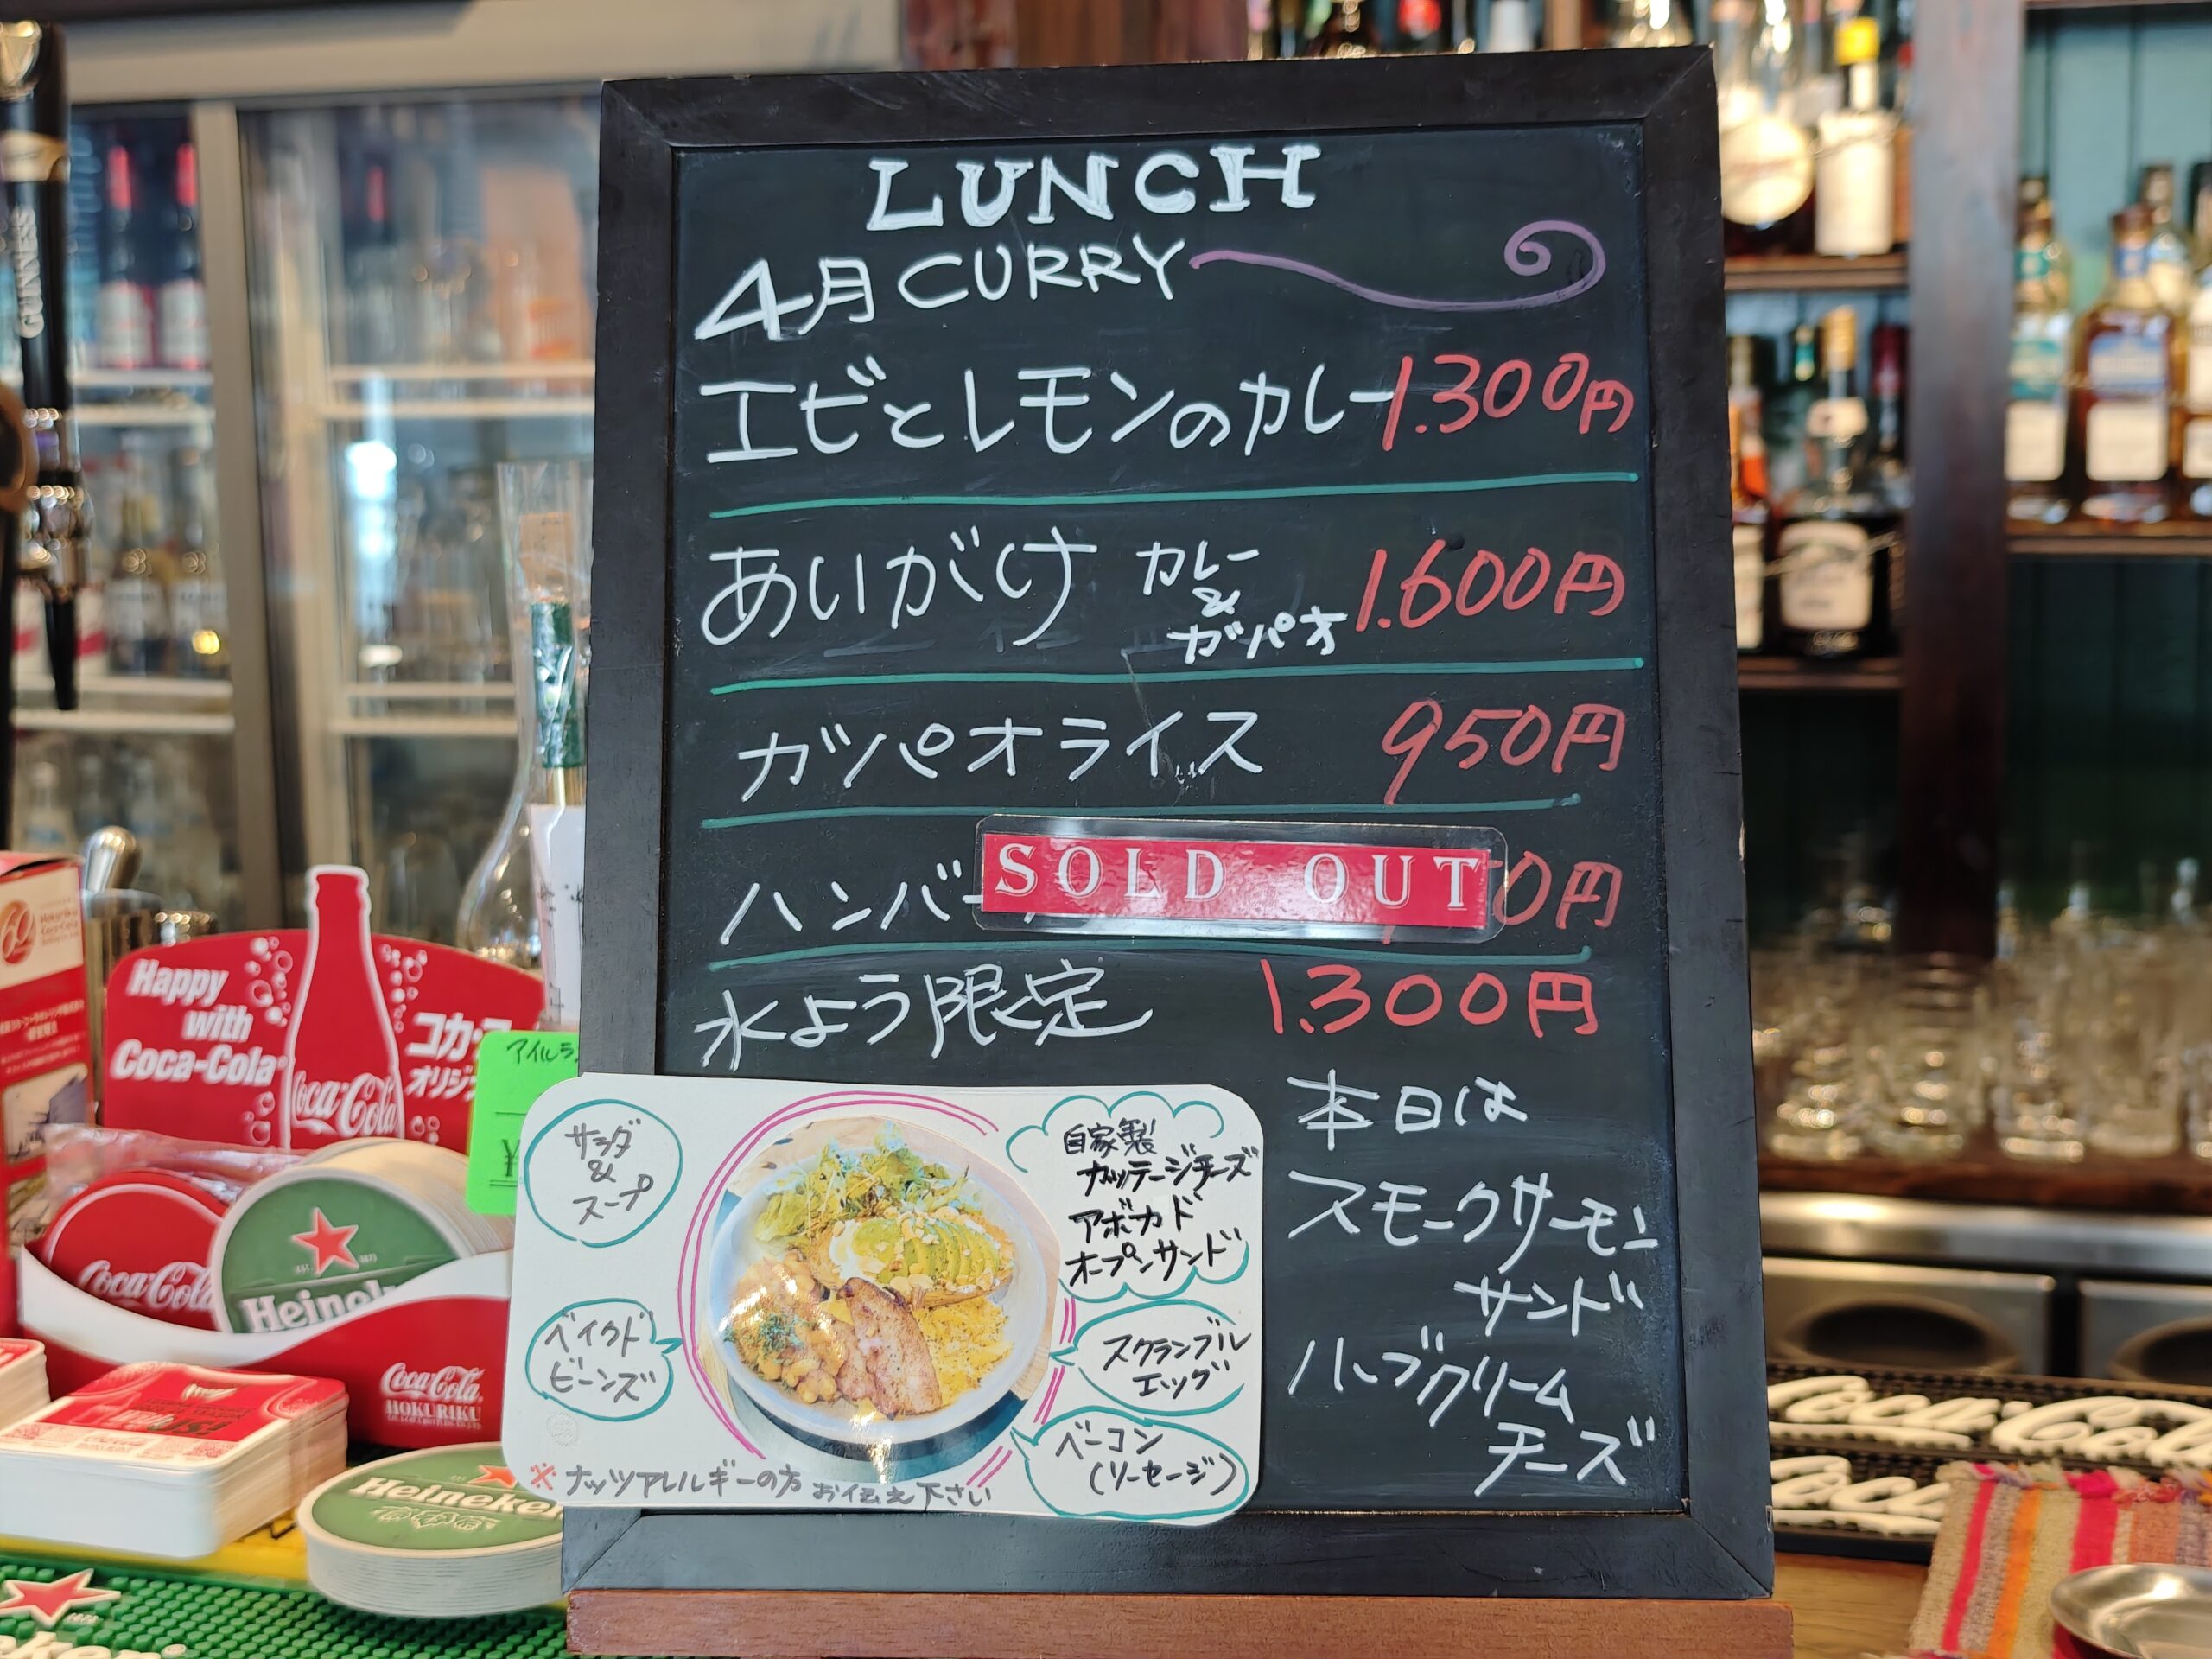 LUNCH
4月 CURRY
エビとレモンのカレー 1.300円
あいがけ カレー & ガパオ 1.600円
ガパオライス 950円
ハンバー
SOLD OUT
0円
水よう限定 1.300円
本日は
スモークサーモン
サンド
ハーブクリーム
チーズ
サラダ
&
スープ
自家製
カッテージチーズ
アボカド
オープンサンド
ベイクド
ビーンズ
スクランブル
エッグ
ベーコン
(ソーセージ)
※ナッツアレルギーの方 お伝え下さい
GUINNESS
Happy
with
Coca-Cola
Coca-Cola
コカ・コ
オリジ
アイルラ
¥
Coca-Cola
Heineke
Coca-Cola
HOKURIKU
Heineken
Coca-Cola